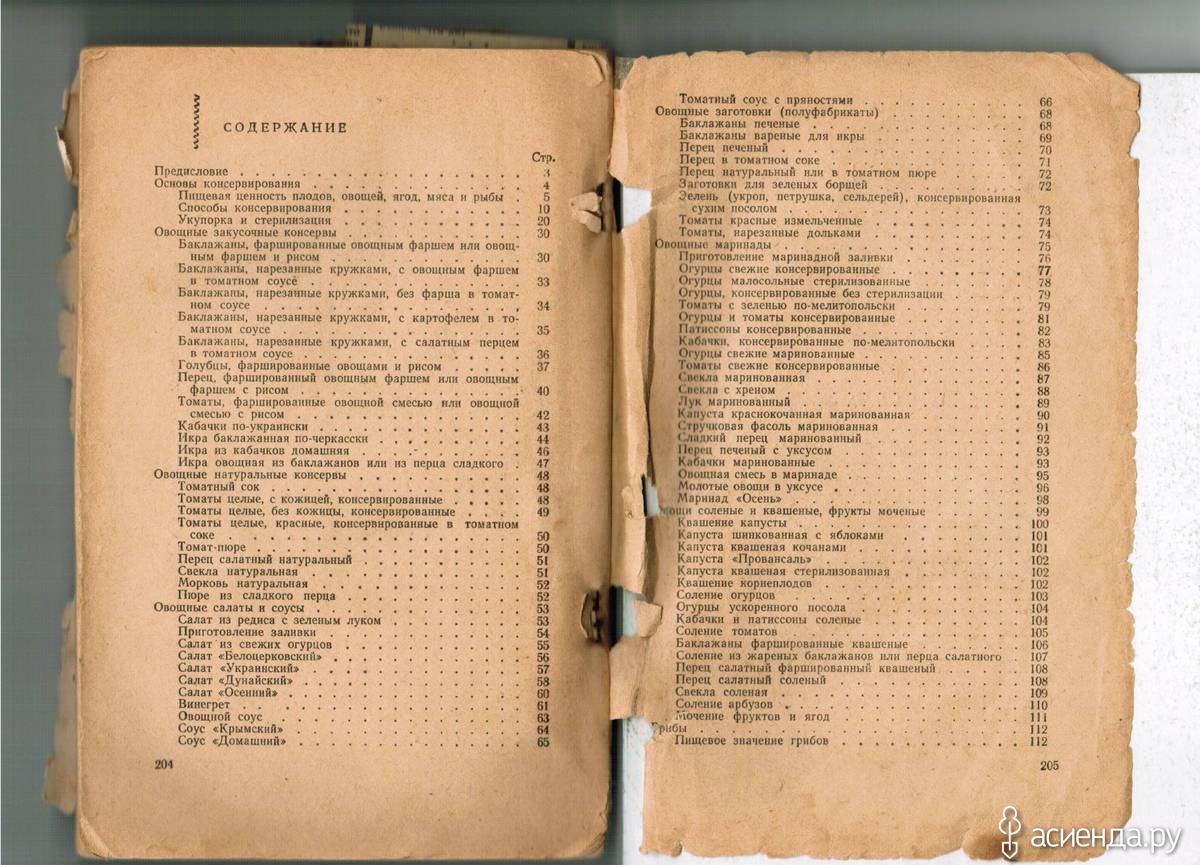 СОДЕРЖАНИЕ
Стр.
Предисловие 3
Основы консервирования 4
Пищевая ценность плодов, овощей, ягод, мяса и рыбы 5
Способы консервирования 10
Укупорка и стерилизация 20
Овощные закусочные консервы 30
Баклажаны, фаршированные овощным фаршем или овощ-
ным фаршем и рисом 30
Баклажаны, нарезанные кружками, с овощным фаршем
в томатном соусе 33
Баклажаны, нарезанные кружками, без фарша в томат-
ном соусе 34
Баклажаны, нарезанные кружками, с картофелем в то-
матном соусе 35
Баклажаны, нарезанные кружками, с салатным перцем
в томатном соусе 36
Голубцы, фаршированные овощами и рисом 37
Перец, фаршированный овощным фаршем или овощным
фаршем с рисом 40
Томаты, фаршированные овощной смесью или овощной
смесью с рисом 42
Кабачки по-украински 43
Икра баклажанная по-черкасски 44
Икра из кабачков домашняя 46
Икра овощная из баклажанов или из перца сладкого 47
Овощные натуральные консервы 48
Томатный сок 48
Томаты целые, с кожицей, консервированные 48
Томаты целые, без кожицы, консервированные 49
Томаты целые, красные, консервированные в томатном
соке 50
Томат-пюре 50
Перец салатный натуральный 51
Свекла натуральная 51
Морковь натуральная 52
Пюре из сладкого перца 52
Овощные салаты и соусы 53
Салат из редиса с зеленым луком 53
Приготовление заливки 54
Салат из свежих огурцов 55
Салат «Белоцерковский» 56
Салат «Украинский» 57
Салат «Дунайский» 58
Салат «Осенний» 60
Винегрет 61
Овощной соус 63
Соус «Крымский» 64
Соус «Домашний» 65
204
Томатный соус с пряностями 66
Овощные заготовки (полуфабрикаты) 68
Баклажаны печеные 68
Баклажаны вареные для икры 69
Перец печеный 70
Перец в томатном соке 71
Перец натуральный или в томатном пюре 72
Заготовки для зеленых борщей 72
Зелень (укроп, петрушка, сельдерей), консервированная
сухим посолом 73
Томаты красные измельченные 74
Томаты, нарезанные дольками 74
Овощные маринады 75
Приготовление маринадной заливки 76
Огурцы свежие консервированные 77
Огурцы малосольные стерилизованные 78
Огурцы, консервированные без стерилизации 79
Томаты с зеленью по-мелитопольски 79
Огурцы и томаты консервированные 81
Патиссоны консервированные 82
Кабачки, консервированные по-мелитопольски 83
Огурцы свежие маринованные 85
Томаты свежие консервированные 86
Свекла маринованная 87
Свекла с хреном 88
Лук маринованный 89
Капуста краснокочанная маринованная 90
Стручковая фасоль маринованная 91
Сладкий перец маринованный 92
Перец печеный с уксусом 93
Кабачки маринованные 93
Овощная смесь в маринаде 95
Молотые овощи в уксусе 96
Маринад «Осень» 98
ощи соленые и квашеные, фрукты моченые 99
Квашение капусты 100
Капуста шинкованная с яблоками 101
Капуста квашеная кочанами 101
Капуста «Провансаль» 102
Капуста квашеная стерилизованная 102
Квашение корнеплодов 102
Соление огурцов 103
Огурцы ускоренного посола 104
Кабачки и патиссоны соленые 104
Соление томатов 105
Баклажаны фаршированные квашеные 106
Соление из жареных баклажанов или перца салатного 107
Перец салатный фаршированный квашеный 108
Перец салатный соленый 108
Свекла соленая 109
Соление арбузов 110
Мочение фруктов и ягод 111
Грибы 112
Пищевое значение грибов 112
205
асиенда.ру